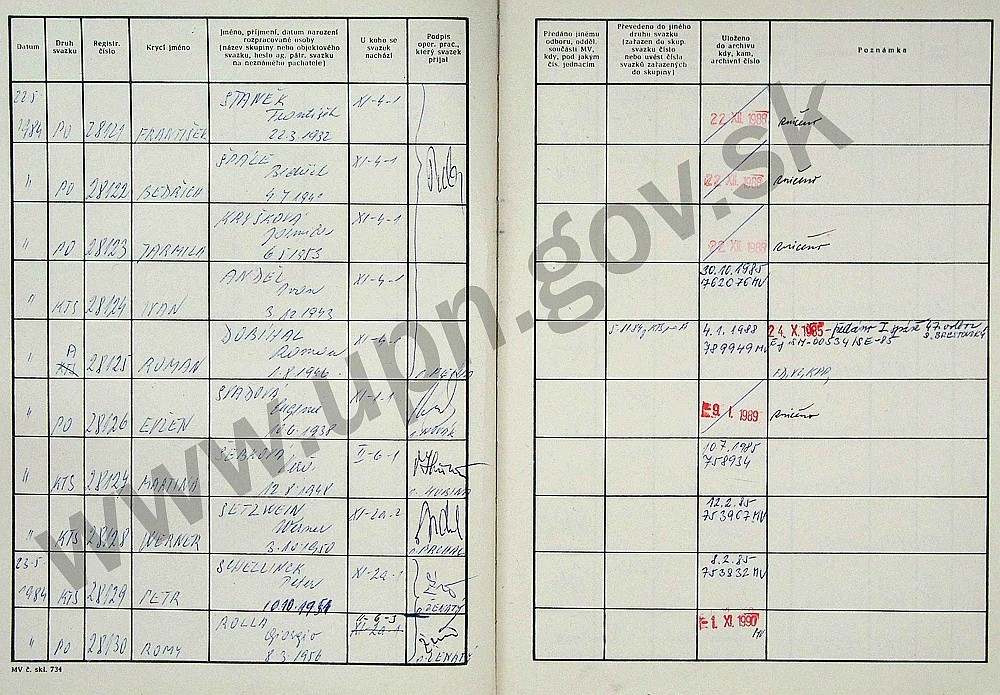 Datum
Druh
svazku
Registr.
číslo
Krycí jméno
Jméno, příjmení, datum narození
rozpracované osoby
(název skupiny nebo objektového
svazku, heslo ag. pátr. svazku
na neznámého pachatele)
U koho se
svazek
nachází
Podpis
oper. prac.,
který svazek
přijal
Předáno jinému
odboru, odděl.
součásti MV,
kdy, pod jakým
čís. jednacím
Převedeno do jiného
druhu svazku
(zařazen do skup.
svazku číslo
nebo uvést čísla
svazků zařazených
do skupiny)
Uloženo
do archivu
kdy, kam,
archivní číslo
Poznámka
22.5.
1984 PO 28121 FRANTIŠEK
STANĚK
František
22.3.1932
XI-4-1
22. XII. 1988 zničeno
" PO 28122 BEDŘICH
ŠPÁLE
Bedřich
XI-4-1
22. XII. 1988 zničeno
" PO 28123 JARMILA
KRYŠKOVÁ
6.5.1953
XI-4-1
22. XII. 1988 zničeno
" KTS 28124 IVAN
ANDĚL
Ivan
3.12.1943
XI-4-1
30.10.1985
762076 MV
" A
KTS 28125 ROMAN
DOBÍHAL
Roman
1.8.1946
XI-4-1
4.1.1988
789949 MV
24. X. 1985 - předáno I. správě 47. odbor
" PO 28126 EVŽEN
XI-1-1
9. 1. 1989 zničeno
" KTS 28127 MARTINA
12.8.1948
II-6-1
10.7.1985
758934
" KTS 28128 WERNER
SETZWEIN
Werner
3.10.1950
XI-2a-2
12.2.85
753967 MV
23.5.
1984 KTS 28129 PETR
SCHELLINEK
Peter
10.10.1951
XI-2a-1
p. ŽENATÝ
8.2.85
753832 MV
" PO 28130 ROMY
ROLLA
Giorgio
8.3.1956
II-6-3
XI-2a-1
p. ŽENATÝ
-1. XI. 1990
MV
MV č. skl. 734
www.upn.gov.sk